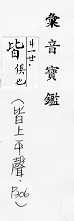 彙音寶鑑
皆 俱也
(皆上平聲·P306)